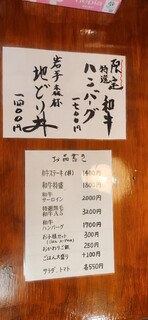 限定
特選 和牛
ハンバーグ
一七〇〇円
岩手森林
地どり丼
一四〇〇円
お品書き
和牛ステーキ(丼) 1900円
和牛特盛 2800円
和牛
サーロイン 2000円
特選黒毛
和牛A5 3200円
和牛
ハンバーグ 1700円
お子様セット 300円
おかわりご飯 250円
ごはん大盛り +100円
サラダ、トマト 各550円